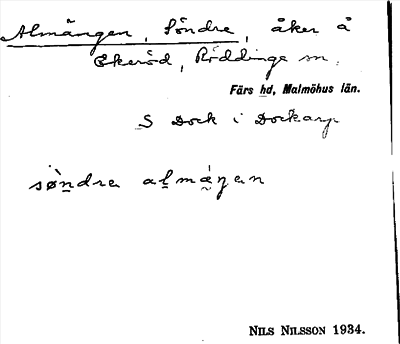 Almången, Söndre, åker å
Ekeröd, Röddinge sn.
Färs hd, Malmöhus län.
S Dock i Dockarp
sø̀ndra almáŋen
NILS NILSSON 1934.